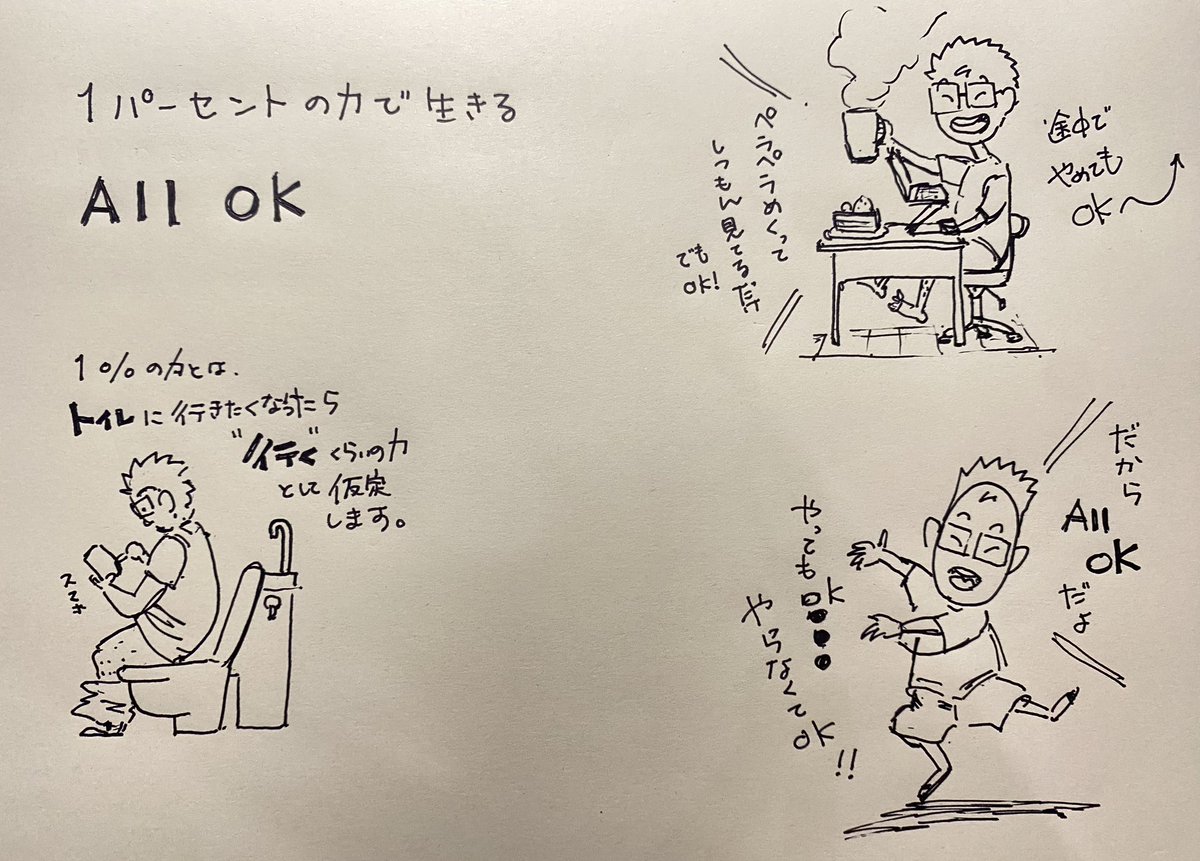 1パーセントの力で生きる
All OK
1%の力とは、
トイレに行きたくなったら
"行く"くらいの力
として仮定
します。
スマホ
ペラペラめくって
しつもん見てるだけ
でも
OK!
途中で
やめても
OK
だから
All
OK
だよ
やっても OK
やらなくて OK!!